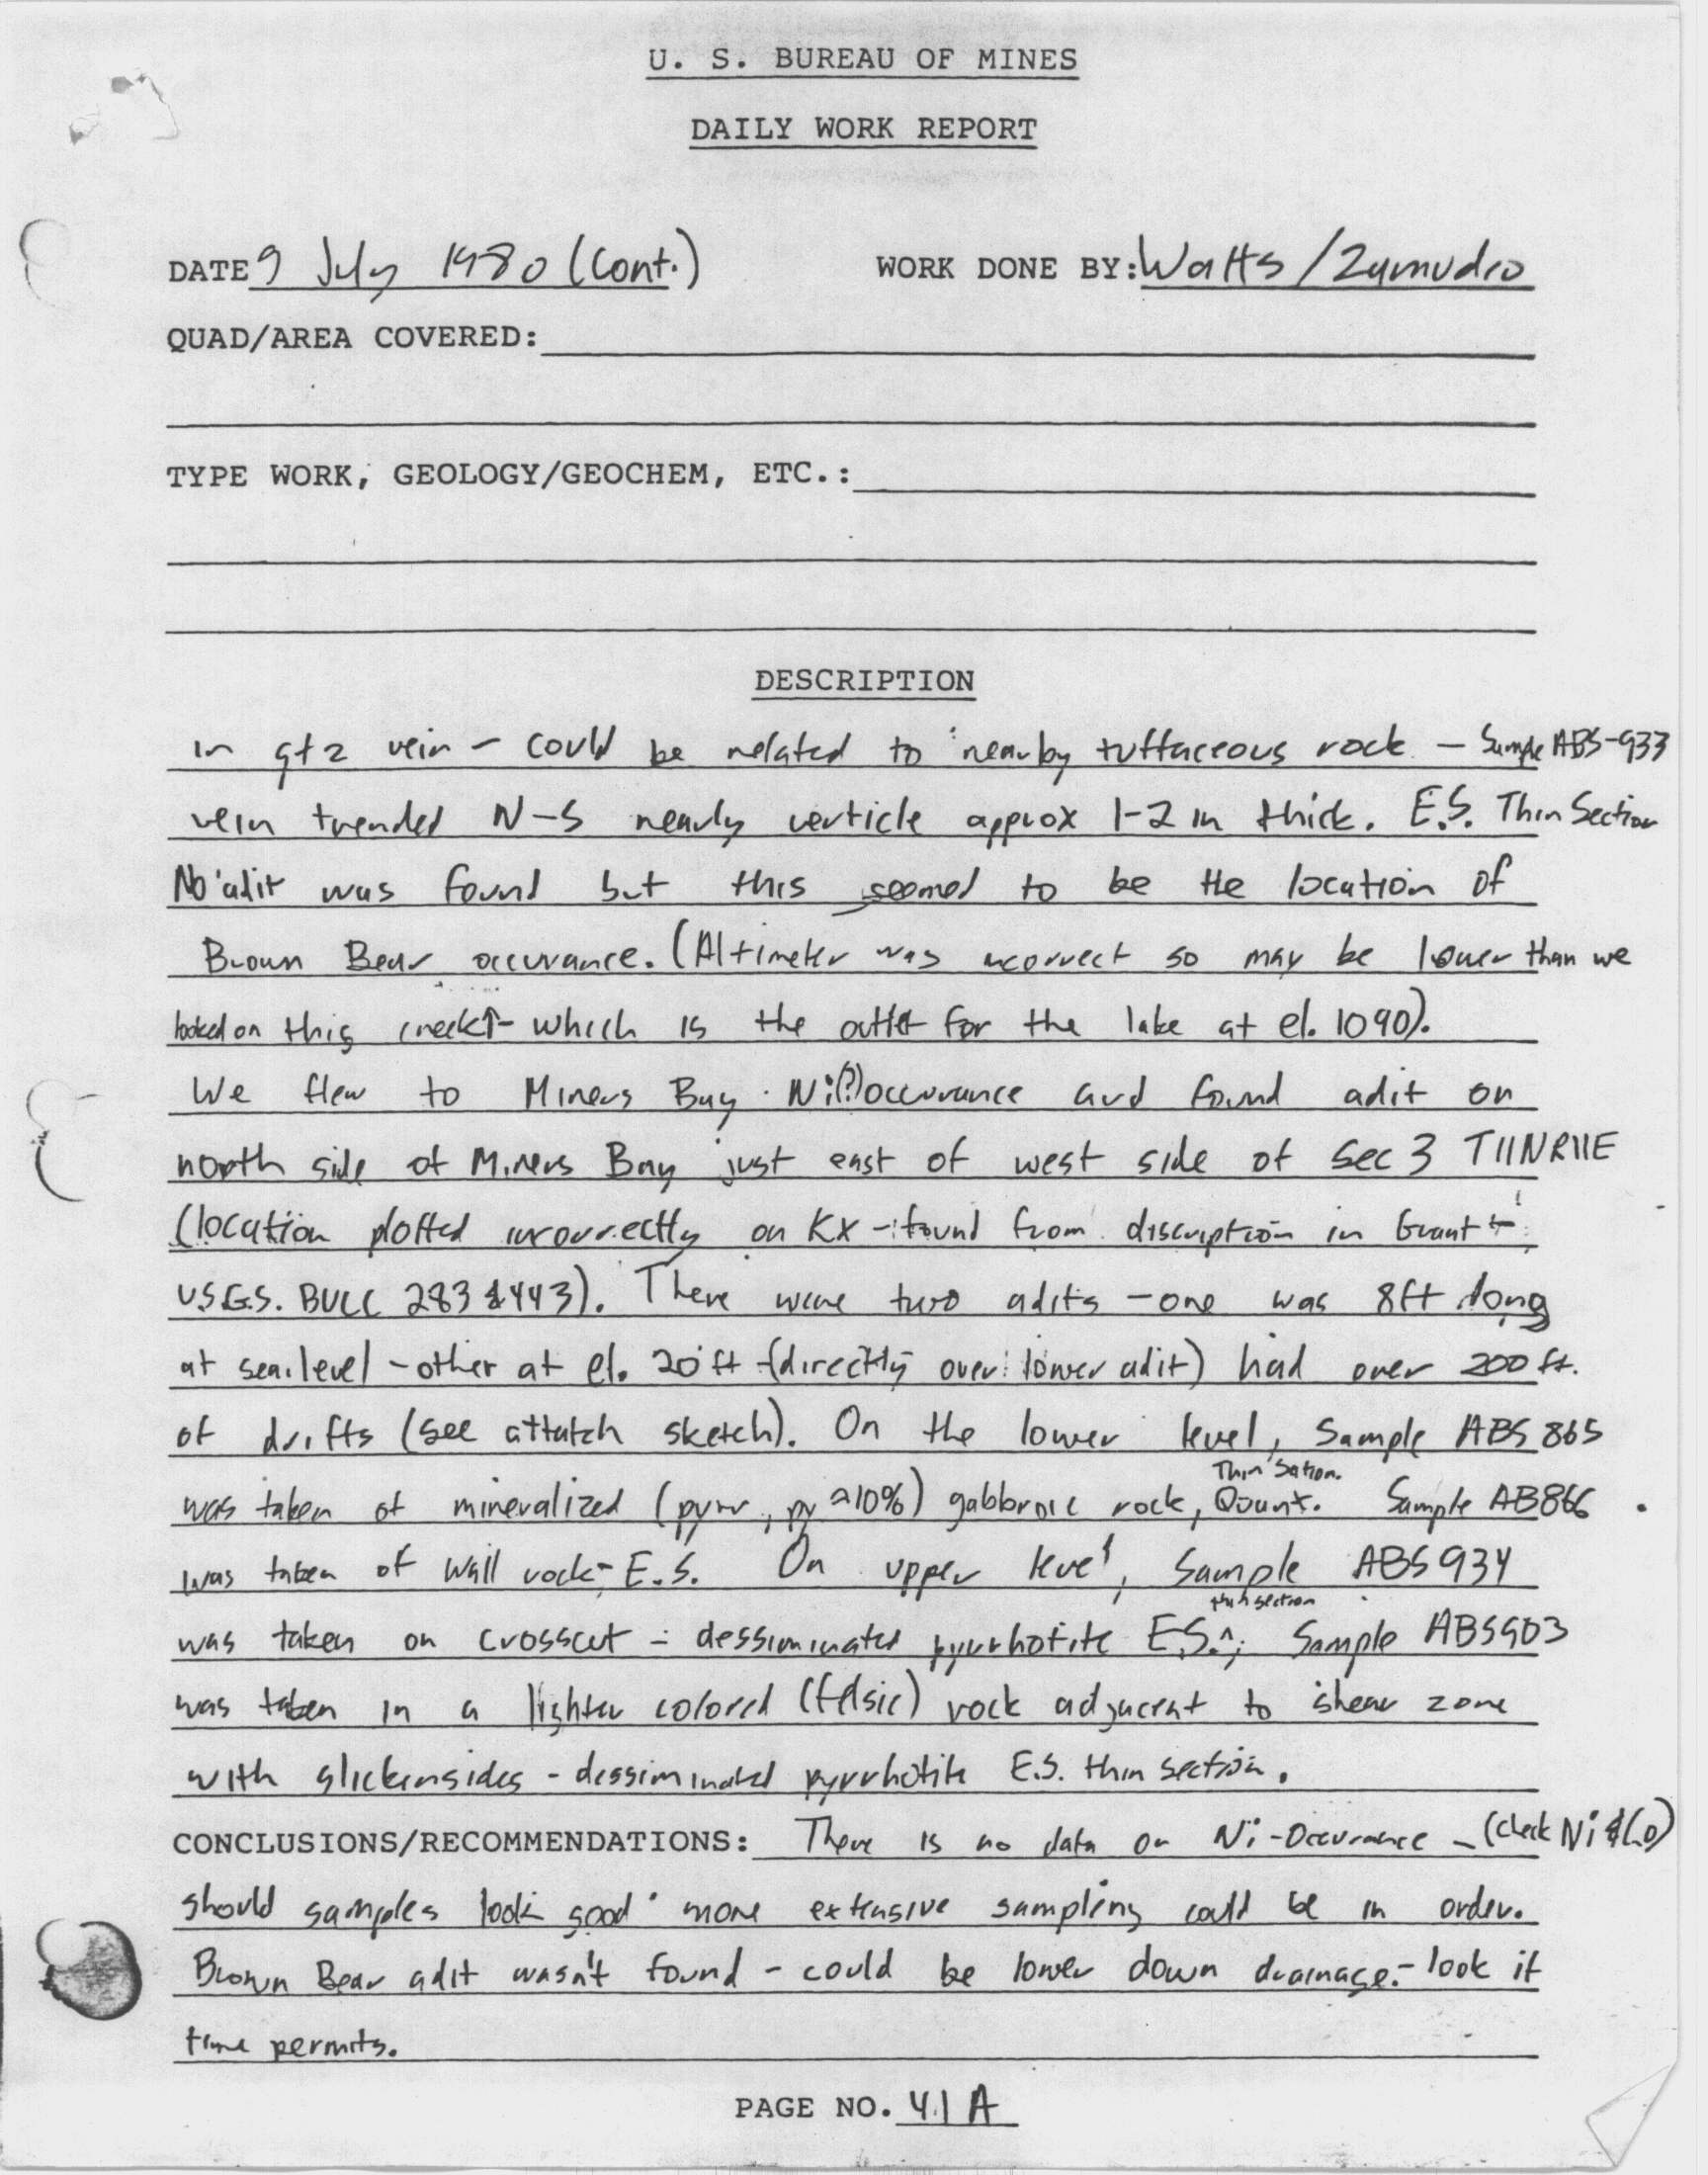 U. S. BUREAU OF MINES
DAILY WORK REPORT
DATE 9 July 1980 (Cont.) WORK DONE BY: Watts/Zamudio
QUAD/AREA COVERED:
TYPE WORK, GEOLOGY/GEOCHEM, ETC.:
DESCRIPTION
in qtz vein - could be related to nearby tuffaceous rock - Sample ABS-933
vein trended N-S nearly verticle approx 1-2 in thick. E.S. Thin Section
No adit was found but this seemed to be the location of
Brown Bear occurance. (Altimeter was incorrect so may be lower than we
looked on this creek - which is the outlet for the lake at el. 1090).
We flew to Miners Bay Ni(?) occurance and found adit on
north side of Miners Bay just east of west side of Sec 3 T11NR11E
(location plotted incorrectly on KX - found from discription in Grant
U.S.G.S. BULL 283 & 443). There were two adits - one was 8ft long
at sea level - other at el. 20 ft (directly over lower adit) had over 200 ft.
of drifts (see attatch sketch). On the lower level, Sample ABS 865
Thin Section.
was taken of mineralized (pyrr, py ≈10%) gabbroic rock, Quant. Sample AB866
was taken of wall rock - E.S. On upper level, Sample ABS 934
thin section
was taken on crosscut - dessiminated pyrrhotite E.S.^; Sample ABS903
was taken in a lighter colored (felsic) rock adjacent to shear zone
with slickensides - dessiminated pyrrhotite E.S. thin section.
CONCLUSIONS/RECOMMENDATIONS: There is no data on Ni-Occurance - (check Ni & Co)
should samples look good more extensive sampling could be in order.
Brown Bear adit wasn't found - could be lower down drainage - look if
time permits.
PAGE NO. 41A